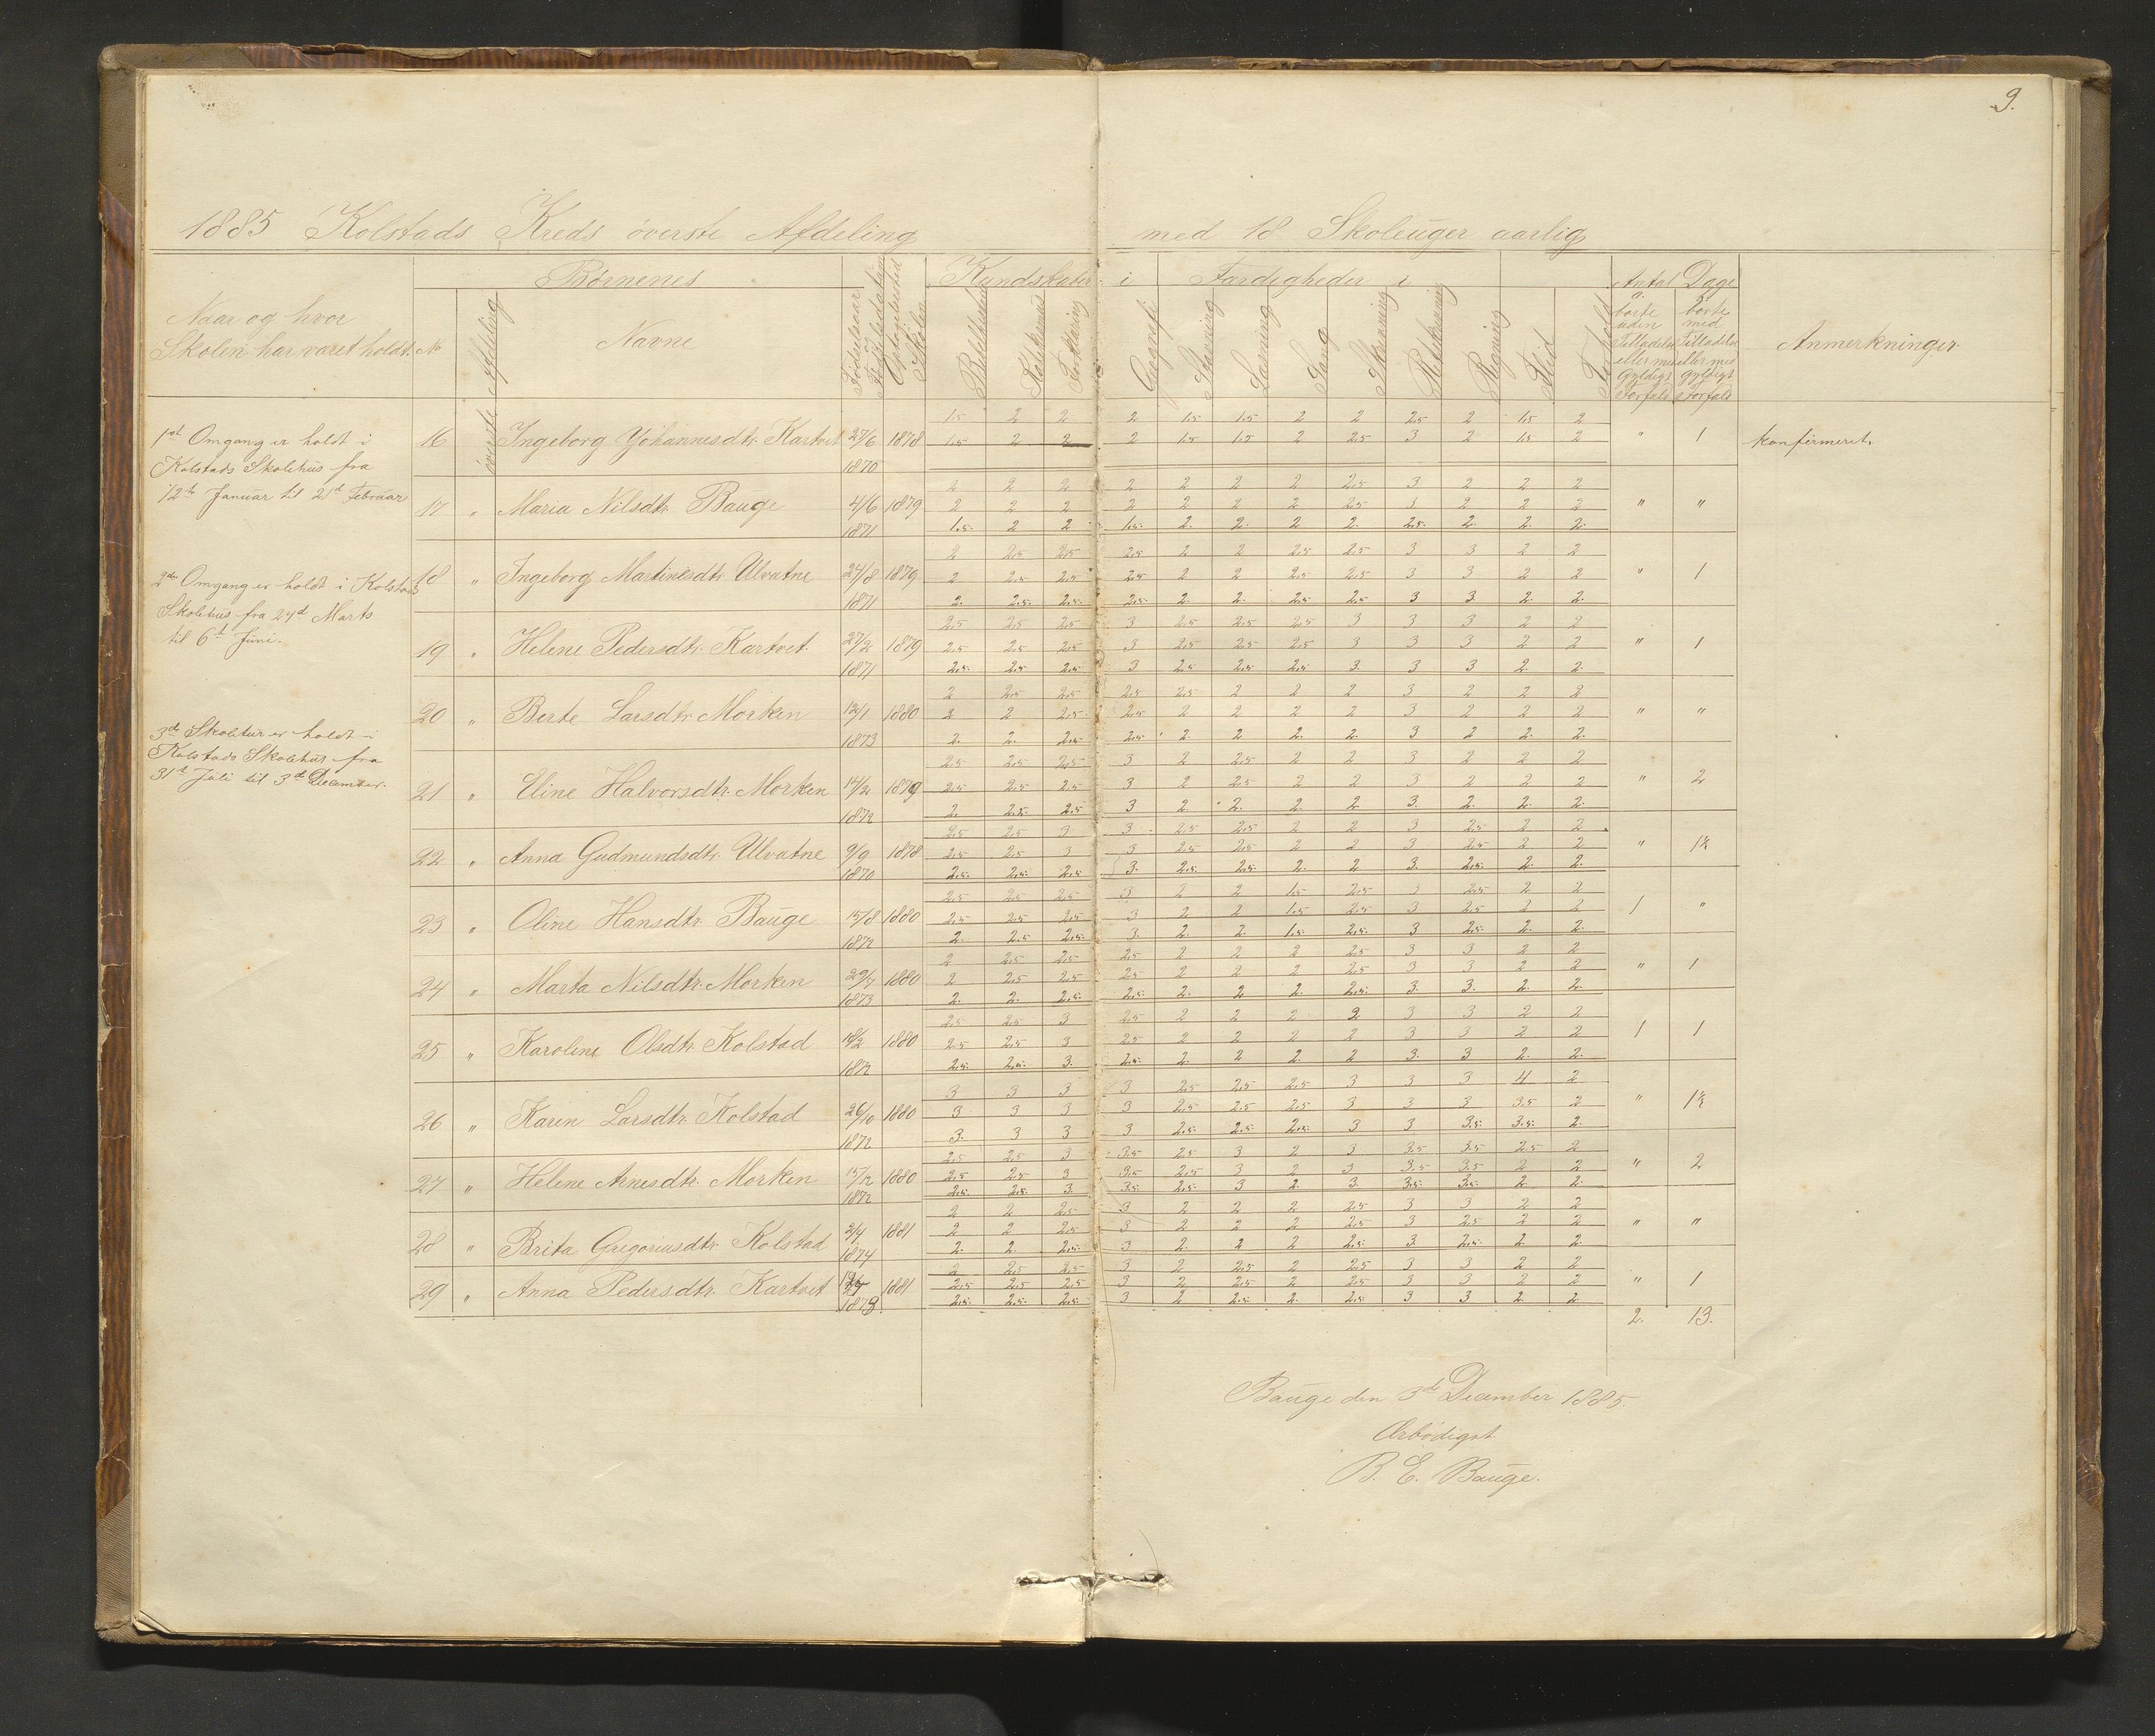 9.
1885 Kolstads Kreds överste Afdeling med 18 Skoleuger aarlig
Naar og hvor Skolen har været holdt.
Børnenes
No
överste Afdeling
Navne
Fødselsaar og Fødselsdatum
Optagelsestid i Skolen
Kundskaber i
Bibelhistorie
Katekismus
Forklaring
Geografi
Færdigheder i
Stavning
Læsning
Sang
Skrivning
Retskrivning
Regning
Flid
Forhold
Antal Dage
borte uden Tilladelse eller med Gyldigt Forfald
borte med Tilladelse eller med gyldigt Forfald
Anmerkninger
1st Omgang er holdt i
Kolstads Skolehus fra
12te Januar til 21d Februar
2den Omgang er holdt i Kolstads
Skolehus fra 24d Marts
til 6t Juni.
3de Skoletur er holdt i
Kolstads Skolehus fra
31t Juli til 3de December.
1.5 2 2 2 1.5 1.5 2 2 2.5 2 1.5 2
16 Ingeborg Johannesdtr. Kartveit 27/6 1870 1878 1.5 2 2 2 1.5 1.5 2 2.5 3 2 1.5 2 " 1 konfirmeret.
2 2 2 2 2 2 2 2.5 3 2 2 2
17 " Maria Nilsdtr. Bauge 4/6 1871 1879 2 2 2 2 2 2 2 2.5 3 2 2 2 " "
1.5 2 2 1.5 2. 2. 2 2. 2.5. 2. 2. 2.
2 2.5 2.5 2.5 2 2 2.5 2.5 3 3 2 2
18 " Ingeborg Martinesdtr. Ulvatne 24/8 1871 1879 2 2.5 2.5 2.5 2 2 2.5 2.5 3 3 2 2 " 1
2. 2.5. 2.5. 2.5. 2. 2. 2.5 2.5. 3 3. 2. 2.
2.5 2.5 2.5 3 2.5 2.5 2.5 3 3 3 2 2
19 " Helene Pedersdtr. Kartvet 27/2 1871 1879 2.5 2.5 2.5 3 2.5 2.5 2.5 3 3 3 2 2 " 1
2.5. 2.5 2.5. 3 2.5 2.5 2.5 3. 3 3 2. 2.
2 2.5 2.5 2.5 2.5 2 2 2 3 2 2 2
20 " Berte Larsdtr. Morken 12/1 1873 1880 2 2 2.5 2.5 2 2 2 2 3 2 2 2 " "
2. 2. 2.5. 2.5. 2. 2 2. 2. 3 2 2. 2.
2.5 2.5 2.5 3 2 2.5 2 2 3 2 2 2
21 " Eline Halvorsdtr. Morken 14/2 1872 1879 2.5 2.5 2.5 3 2 2.5 2 2 3 2 2 2 " 2
2. 2.5. 2.5 3 2 2. 2. 2. 3. 2. 2. 2.
2.5 2.5 3 3 2.5 2.5 2 2 3 2.5 2 2
22 " Anna Gudmundsdtr. Ulvatne 9/9 1870 1878 2.5 2.5 3 3 2.5 2.5 2 2 3 2.5 2 2 " 1½
2.5. 2.5. 2.5 3. 2.5. 2.5. 2. 2 3. 2.5. 2. 2.
2.5 2.5 2.5 3 2 2 1.5 2.5 3 2.5 2 2
23 " Oline Hansdtr. Bauge 15/8 1872 1880 2.5 2.5 2.5 3 2 2 1.5 2.5 3 2.5 2 2 1 "
2. 2.5 2.5. 3. 2. 2. 1.5. 2.5. 3 2.5. 2. 2.
2 2.5 2.5 2.5 2 2 2 2.5 3 3 2 2
24 " Marta Nilsdtr. Morken 29/7 1873 1880 2 2.5 2.5 2.5 2 2 2 2.5 3 3 2 2 " 1
2. 2. 2.5. 2.5. 2. 2 2. 2.5. 3. 3. 2. 2.
2.5 2.5 3 2.5 2 2 2 2 3 3 2 2
25 " Karoline Olsdtr. Kolstad 18/2 1872 1880 2.5 2.5 3 2.5 2 2 2 2 3 3 2 2 1 1
2.5. 2.5. 3. 2.5. 2. 2 2. 2 3. 3 2. 2.
3 3 3 3 2.5 2.5 2.5 3 3 3 4 2
26 " Karen Larsdtr. Kolstad 26/10 1872 1880 3 3 3 3 2.5 2.5 2.5 3 3 3 3.5 2 " 1½
3. 3 3 3 2.5. 2.5 2.5. 3 3 3.5. 3.5. 2.
2.5 2.5 3 3.5 2.5 3 2 3 3.5 3.5 2.5 2
27 " Helene Arnesdtr. Morken 15/12 1872 1880 2.5 2.5 3 3.5 2.5 3 2 3 3.5 3.5 2 2 " 2
2.5. 2.5. 3. 3.5. 2.5. 3 2. 3. 3.5. 3.5. 2. 2.
2 2 2.5 3 2 2 2 2.5 3 3 2 2
28 " Brita Gregoriusdtr. Kolstad 2/4 1874 1881 2 2 2.5 3 2 2 2 2.5 3 2.5 2 2 " "
2. 2. 2.5. 3 2. 2 2 2.5. 3. 2.5. 2. 2.
2 2.5 2.5 3 2 2.5 2 2.5 3 3 2 2
29 " Anna Pedersdtr. Kartvet 1873 1881 2.5 2.5 2.5 3 2 2.5 2 2.5 3 3 2 2 " 1
2.5. 2.5. 2.5. 3 2 2.5. 2. 2.5. 3 3 2. 2.
2. 13.
Bauge den 3de December 1885.
Ærbödigst
B. E. Bauge.